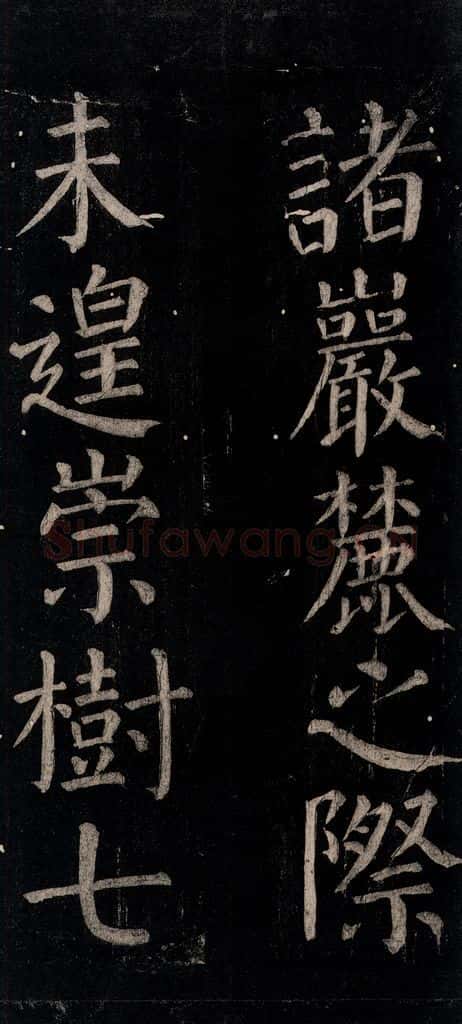 諸巖麓之際
未遑崇樹七
Shufawang.cn